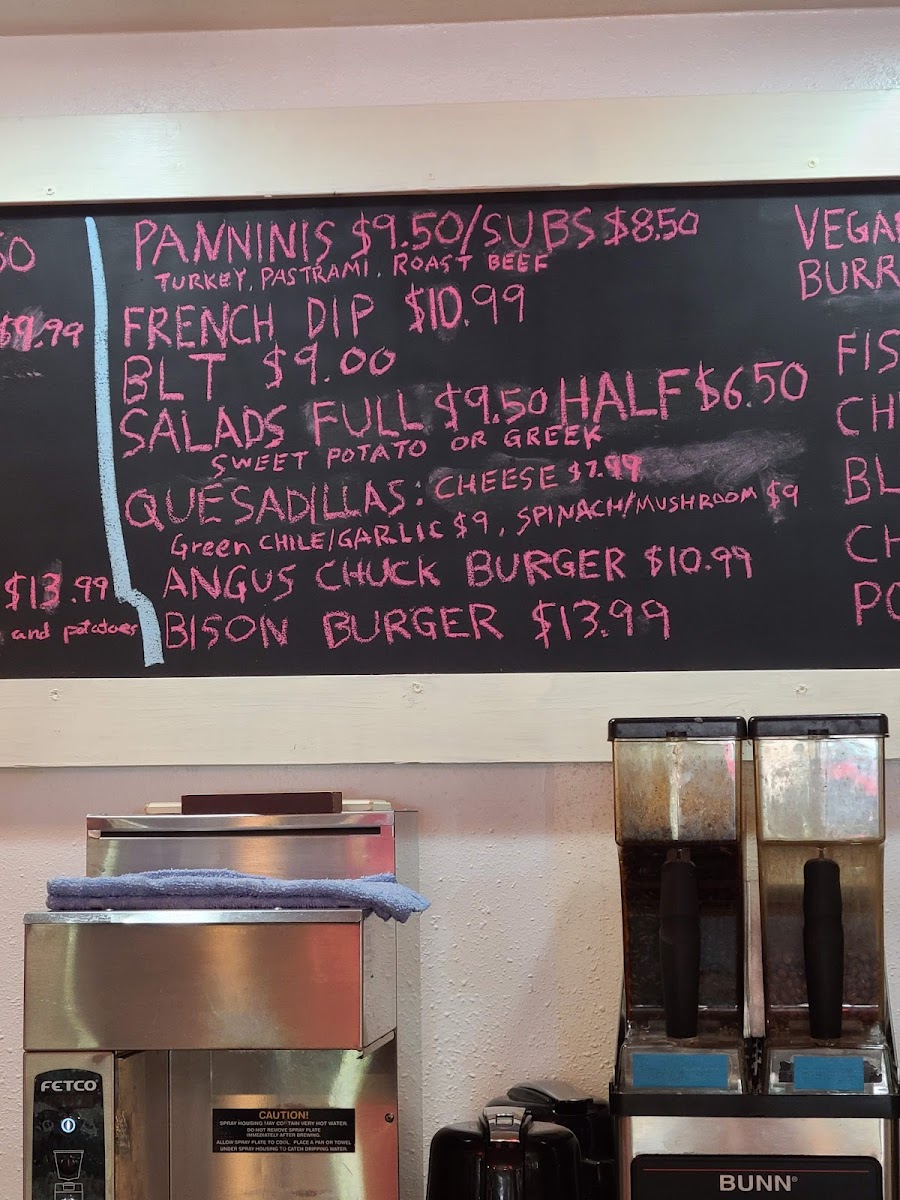 50
$9.99
$13.99
and potatoes
PANNINIS $9.50/SUBS $8.50
TURKEY, PASTRAMI, ROAST BEEF
FRENCH DIP $10.99
BLT $9.00
SALADS FULL $9.50 HALF $6.50
SWEET POTATO OR GREEK
QUESADILLAS: CHEESE $7.99
Green CHILE/GARLIC $9, SPINACH/MUSHROOM $9
ANGUS CHUCK BURGER $10.99
BISON BURGER $13.99
VEGA
BURR
FIS
CH
BL
CH
PO
FETCO
CAUTION!
SPRAY HOUSING MAY CONTAIN VERY HOT WATER.
DO NOT REMOVE SPRAY PLATE
IMMEDIATELY AFTER BREWING.
ALLOW SPRAY PLATE TO COOL. PLACE A PAN OR TOWEL
UNDER SPRAY HOUSING TO CATCH DRIPPING WATER.
BUNN®